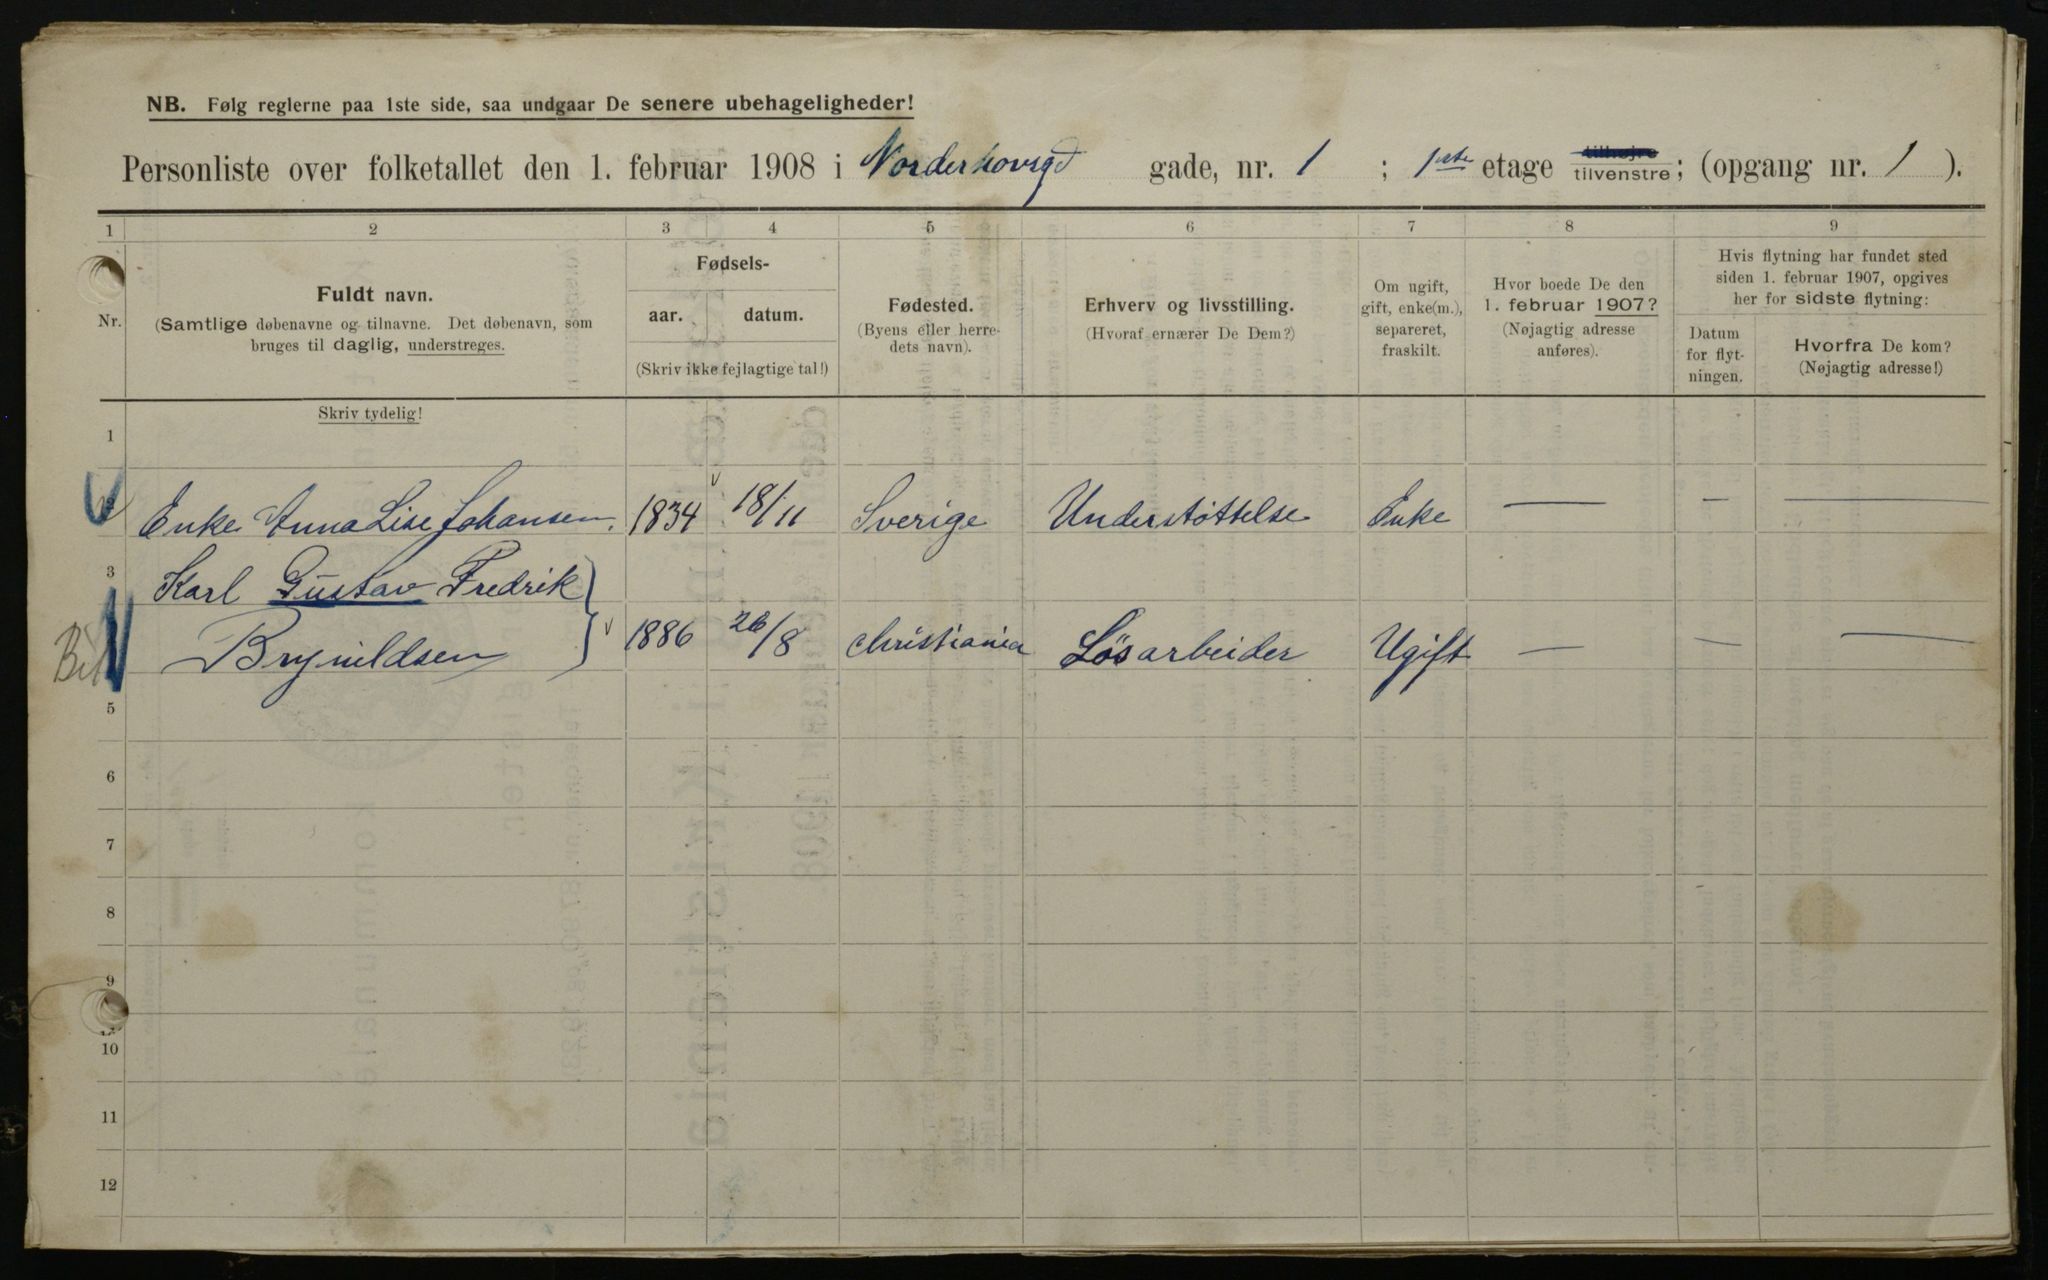 NB. Følg reglerne paa 1ste side, saa undgaar De senere ubehageligheder!
Personliste over folketallet den 1. februar 1908 i Norderhovsgd gade, nr. 1 ; 1ste etage tilhøjre tilvenstre; (opgang nr. 1 ).
1 2 3 4 5 6 7 8 9
Nr.
Fuldt navn.
(Samtlige døbenavne og tilnavne. Det døbenavn, som
bruges til daglig, understreges.
Skriv tydelig!
Fødsels-
aar. datum.
(Skriv ikke fejlagtige tal!)
Fødested.
(Byens eller herre-
dets navn).
Erhverv og livsstilling.
(Hvoraf ernærer De Dem?)
Om ugift,
gift, enke(m.),
separeret,
fraskilt.
Hvor boede De den
1. februar 1907?
(Nøjagtig adresse
anføres).
Hvis flytning har fundet sted
siden 1. februar 1907, opgives
her for sidste flytning:
Datum
for flyt-
ningen.
Hvorfra De kom?
(Nøjagtig adresse!)
1
2 Enke Anna Lise Johansen. 1834 18/11 Sverige Understøttelse Enke — —
3 Karl Gustav Fredrik
Brynildsen 1886 26/8 Christiania Løsarbeider Ugift — — —
5
6
7
8
9
10
11
12